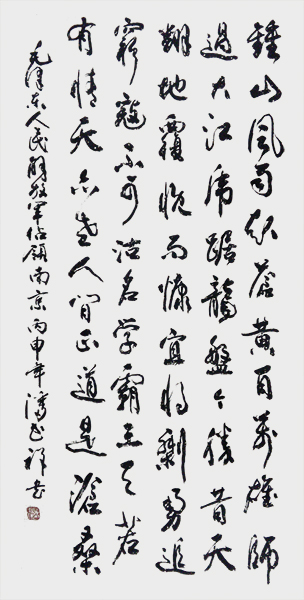 鍾山風雨起蒼黃百萬雄師
過大江虎踞龍盤今勝昔天
翻地覆慨而慷宜將剩勇追
窮寇不可沽名學霸王天若
有情天亦老人間正道是滄桑
毛澤東人民解放軍佔領南京丙申年書